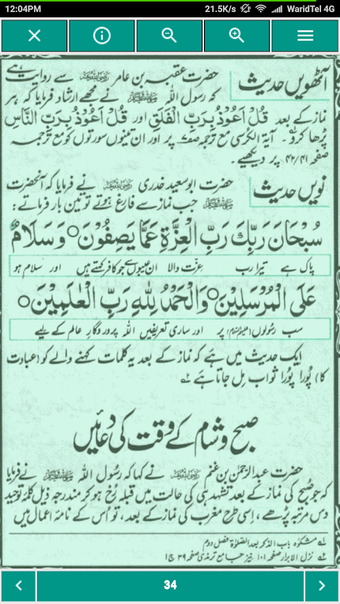 12:04PM 21.5K/s WaridTel 4G
آٹھویں حدیث حضرت عقبہ بن عامر سے روایت ہے
کہ رسول اللہ نے مجھے ارشاد فرمایا کہ ہر
نماز کے بعد قُلْ اَعُوْذُ بِرَبِّ الْفَلَقِ اور قُلْ اَعُوْذُ بِرَبِّ النَّاسِ
پڑھا کرو۔ آیۃ الکرسی مع ترجمہ صفحہ پر اور ان تینوں سورتوں کو مع ترجمہ
صفحہ پر دیکھیے۔
نویں حدیث حضرت ابوسعید خدری نے فرمایا کہ آنحضرت
جب نماز سے فارغ ہوتے تو تین بار فرماتے:
سُبْحَانَ رَبِّكَ رَبِّ الْعِزَّةِ عَمَّا يَصِفُوْنَ○ وَسَلَامٌ
پاک ہے تیرا رب عزت والا ان عیبوں سے جو کافر کہتے ہیں اور سلام ہو
عَلَى الْمُرْسَلِيْنَ○ وَالْحَمْدُ لِلّٰهِ رَبِّ الْعٰلَمِيْنَ○
سب رسولوں پر اور ساری تعریفیں اللہ پروردگار عالم کے لیے
ایک حدیث میں ہے کہ نماز کے بعد یہ کلمات کہنے والے کو (عبادت
کا) پورا پورا ثواب مل جاتا ہے
صبح و شام کے وقت کی دعائیں
حضرت عبدالرحمٰن بن غنم نے کہا کہ رسول اللہ نے فرمایا
کہ جو صبح کی نماز کے بعد تشہد کی حالت میں قبلہ رخ ہو کر مندرجہ ذیل کلمۂ توحید
دس مرتبہ پڑھے، اسی طرح مغرب کی نماز کے بعد، تو اس کے نامۂ اعمال میں
لے مشکوٰۃ باب الذکر بعد الصلوٰۃ فصل دوم
نزل الابرار صفحہ ۱۰۱
34